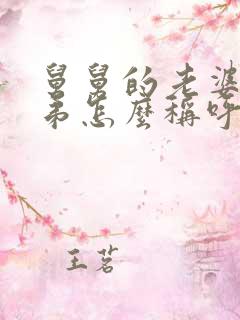 舅舅的老婆
弟怎麼稱呼
王茗